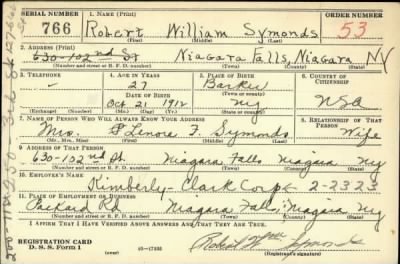 SERIAL NUMBER 1. NAME (Print) ORDER NUMBER
766 Robert William Symonds 53
(First) (Middle) (Last)
2. ADDRESS (Print)
630-102nd St Niagara Falls, Niagara NY
(Number and street or R. F. D. number) (Town) (County) (State)
3. TELEPHONE 4. AGE IN YEARS 5. PLACE OF BIRTH 6. COUNTRY OF CITIZENSHIP
- 27 Barker
DATE OF BIRTH
Oct 21 1912 NY USA
(Exchange) (Number) (Mo.) (Day) (Yr.) (State or country)
7. NAME OF PERSON WHO WILL ALWAYS KNOW YOUR ADDRESS 8. RELATIONSHIP OF THAT PERSON
Mrs. Lenora F. Symonds Wife
(Mr., Mrs., Miss) (First) (Middle) (Last)
9. ADDRESS OF THAT PERSON
630-102nd St. Niagara Falls Niagara Ny
(Number and street or R. F. D. number) (Town) (County) (State)
10. EMPLOYER'S NAME
Kimberly-Clark Corp. 2-2323
11. PLACE OF EMPLOYMENT OR BUSINESS
Packard Rd Niagara Falls, Niagara Ny
(Number and street or R. F. D. number) (Town) (County) (State)
I AFFIRM THAT I HAVE VERIFIED ABOVE ANSWERS AND THAT THEY ARE TRUE.
REGISTRATION CARD
D. S. S. Form 1 (over) 16-17105 Robert Wm Symonds
(Registrant's signature)